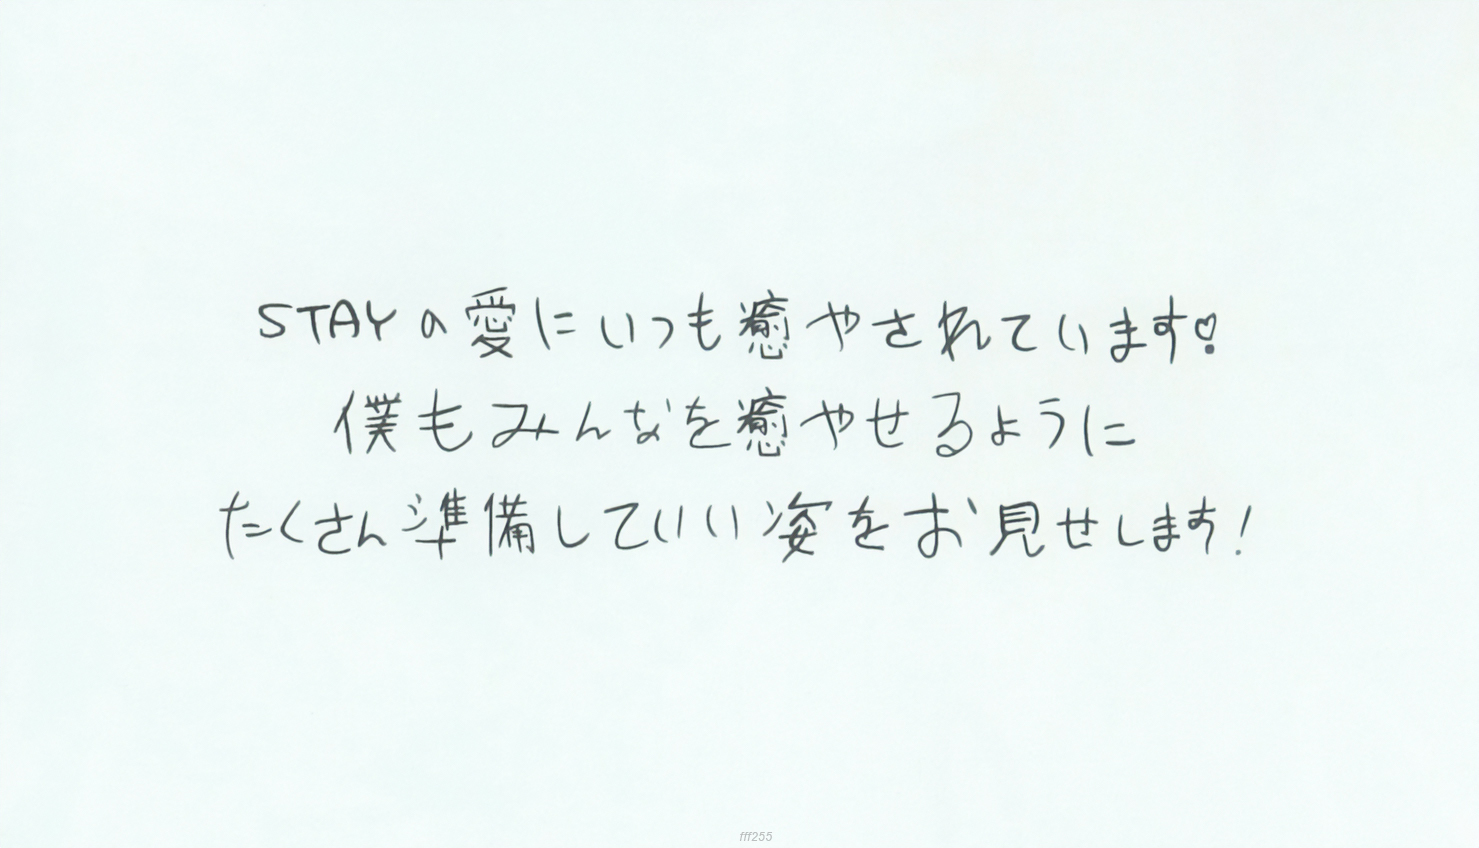 STAYの愛にいつも癒やされています♡
僕もみんなを癒やせるように
たくさん準備していい姿をお見せします!
fff255